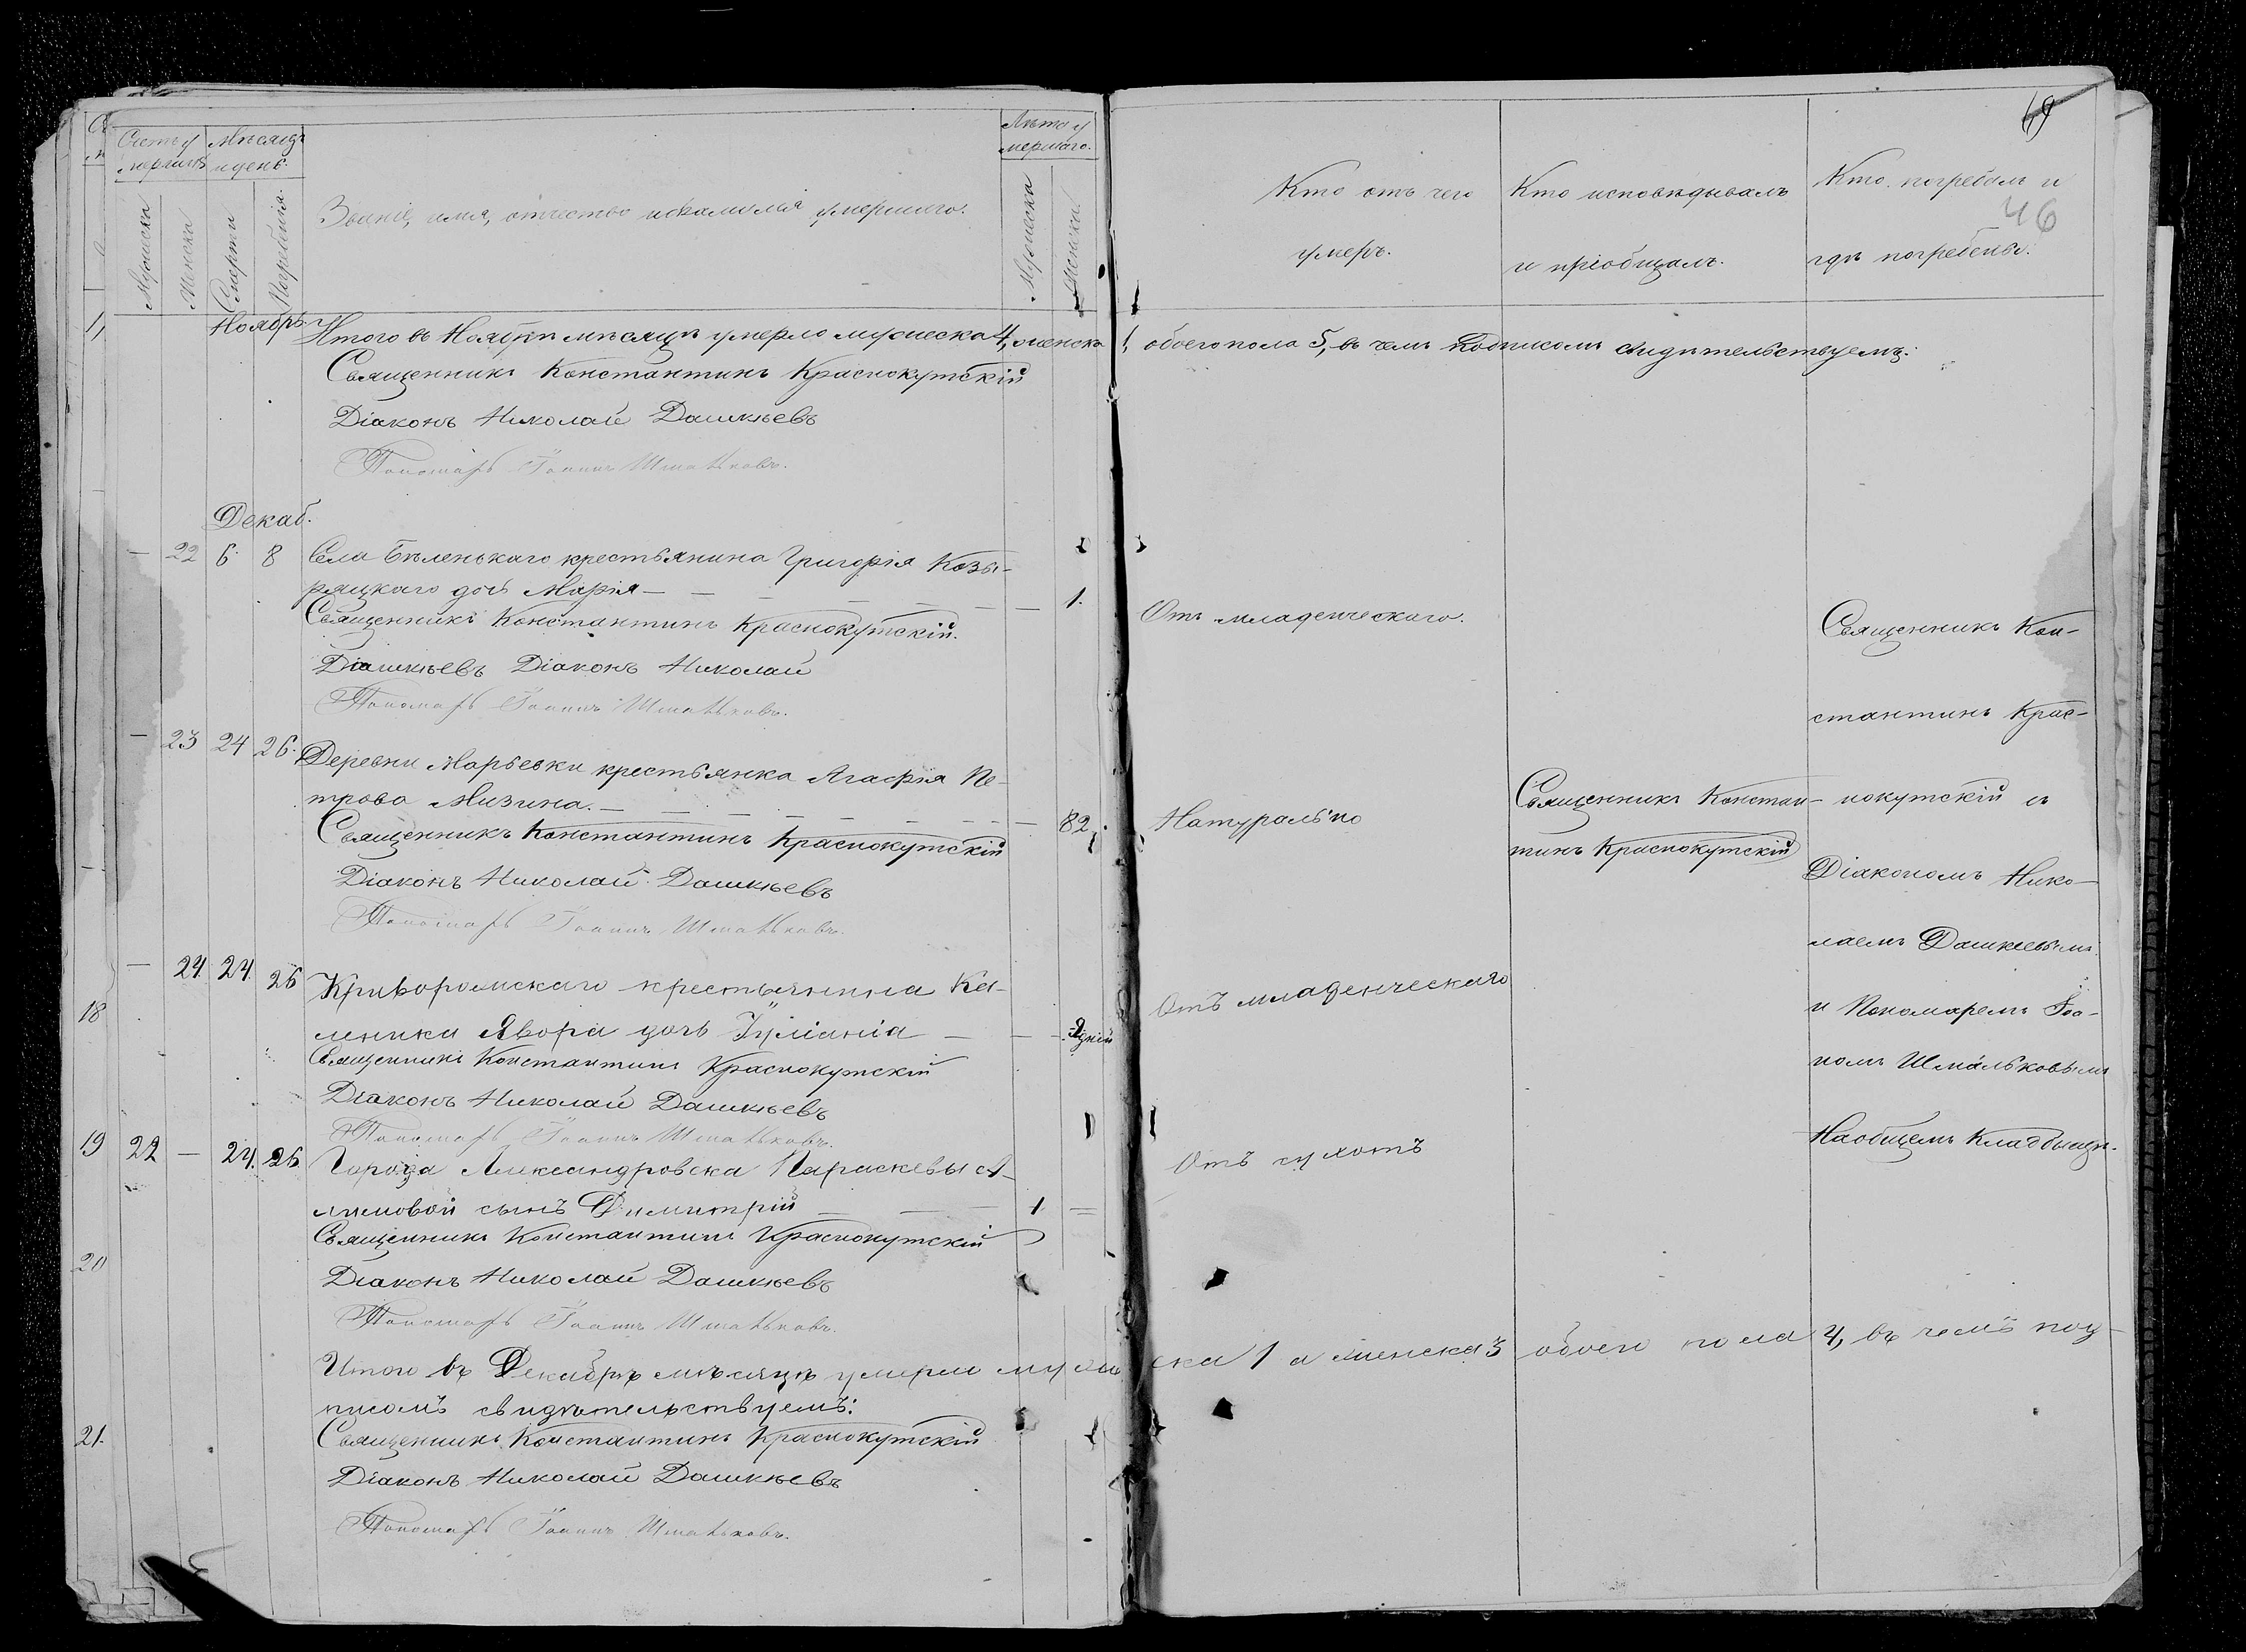 69
46
Счетъ у
мершихъ
Мѣсяцъ
и день.
Мужеска
Женска
Смерти
Погребенія.
Званіе, имя, отчество и фамилія умершаго.
Лѣта у
мершаго.
Мужеска
Женска
Кто отъ чего
умеръ.
Кто исповѣдывалъ
и пріобщалъ.
Кто погребалъ и
гдѣ погребены.
Ноябрь
Итого въ Ноябрѣ мѣсяцѣ умерло мужеска 4, женска 1, обоего пола 5, въ чемъ подписомъ свидѣтельствуемъ:
Священникъ Константинъ Краснокутскій
Діаконъ Николай Дашкѣевъ
Пономарь Іоаннъ Шмальковъ.
Декаб.
— 22 6 8 Села Бѣленькаго крестьянина Григорія Козы-
рицкаго дочь Марія — 1. Отъ младенческаго.
Священникъ Константинъ Краснокутскій.
Дашкѣевъ Діаконъ Николай
Пономарь Іоаннъ Шмальковъ.
— 23 24 26. Деревни Марьевки крестьянка Агафія Пе-
трова Мизина. — 82. Натурально
Священникъ Констан-
тинъ Краснокутскій
Священникъ Константинъ Краснокутскій
Діаконъ Николай Дашкѣевъ
Пономарь Іоаннъ Шмальковъ.
— 24. 24. 26 крестьянина Ка-
леника Явора дочь Іуліанія — дней Отъ младенческаго
Священникъ Константинъ Краснокутскій
Діаконъ Николай Дашкѣевъ
Пономарь Іоаннъ Шмальковъ.
22 — 24. 26 Города Александровска Параскевы А-
лимовой сынъ Димитрій — 1 — Отъ сухотъ
Священникъ Константинъ Краснокутскій
Діаконъ Николай Дашкѣевъ
Пономарь Іоаннъ Шмальковъ.
Священникъ Кон-
стантинъ Крас-
нокутскій съ
Діакономъ Нико-
лаемъ Дашкеевымъ
и Пономаремъ Іоа-
номъ Шмальковымъ
На общемъ кладбищѣ.
Итого въ Декабрѣ мѣсяцѣ умерло мужеска 1 а женска 3 обоего пола 4, въ чемъ под-
писомъ свидѣтельствуемъ:
Священникъ Константинъ Краснокутскій
Діаконъ Николай Дашкѣевъ
Пономарь Іоаннъ Шмальковъ.
18
19
20
21.